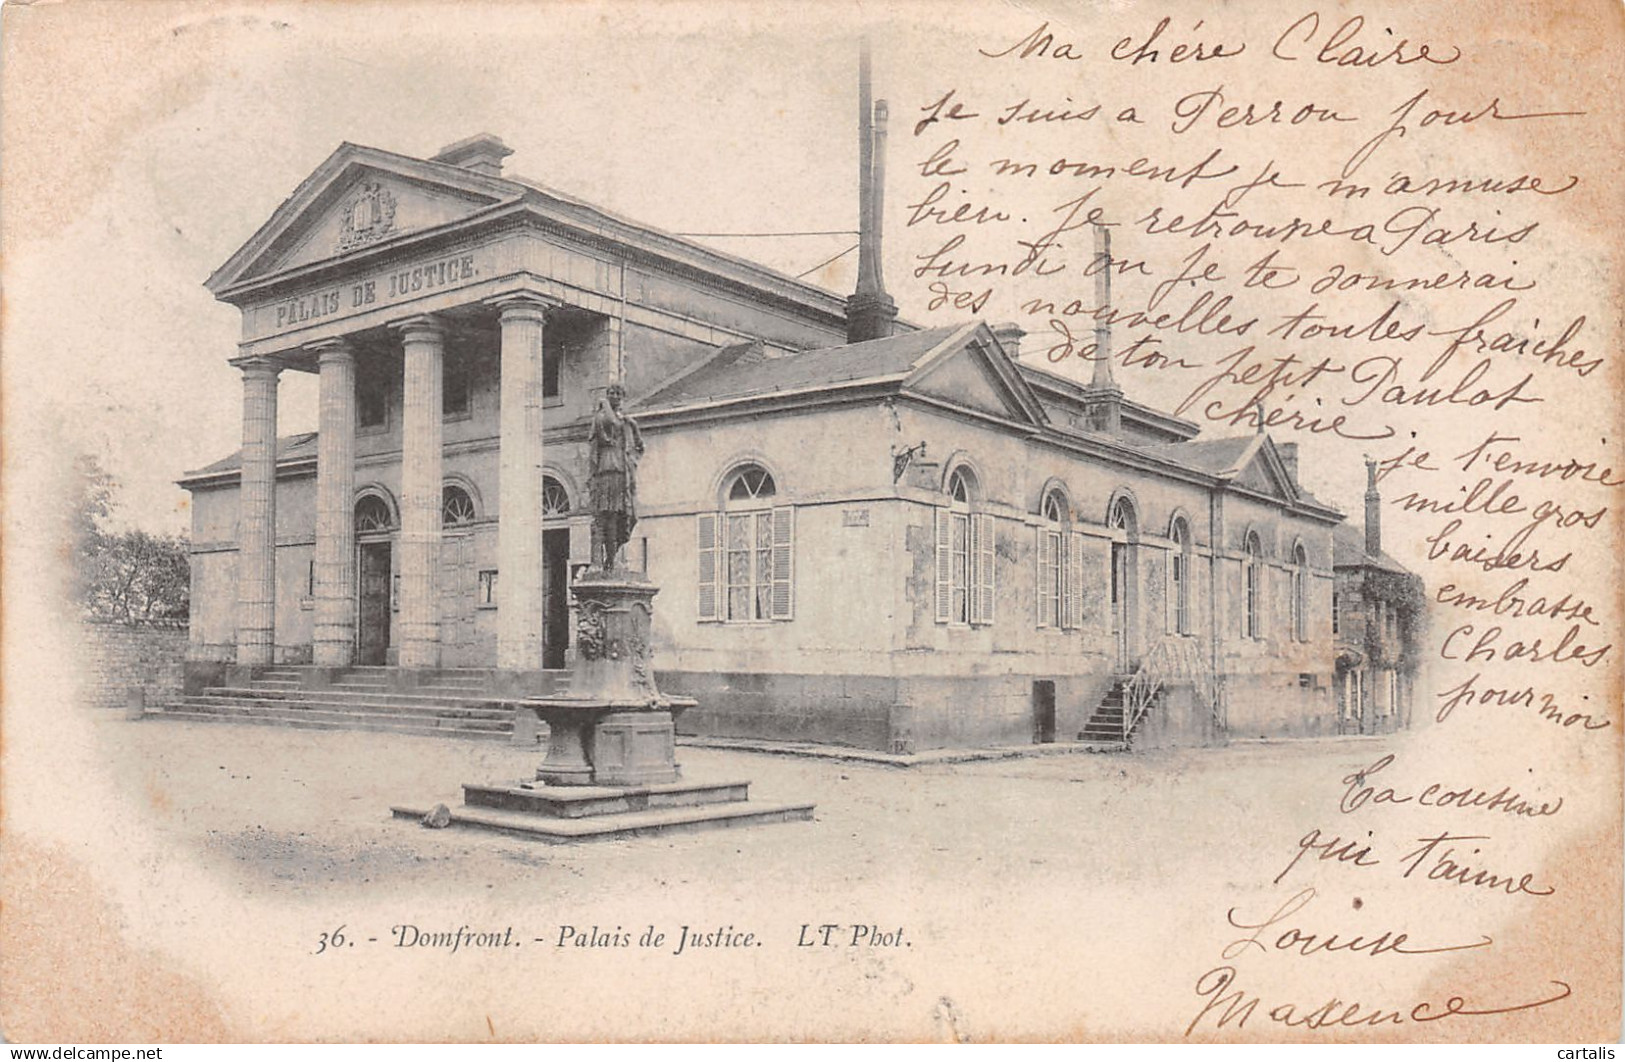 Ma chére Claire
je suis a Perrou pour
le moment je m'amuse
bien. Je retrouve a Paris
lundi ou je te donnerai
des nouvelles toutes fraiches
de ton petit Paulot
chérie
je t'envoie
mille gros
baisers
embrasse
Charles
pour moi
Ta cousine
qui t'aime
Louise
Maxence
PALAIS DE JUSTICE.
36. - Domfront. - Palais de Justice. LT Phot.
cartalis